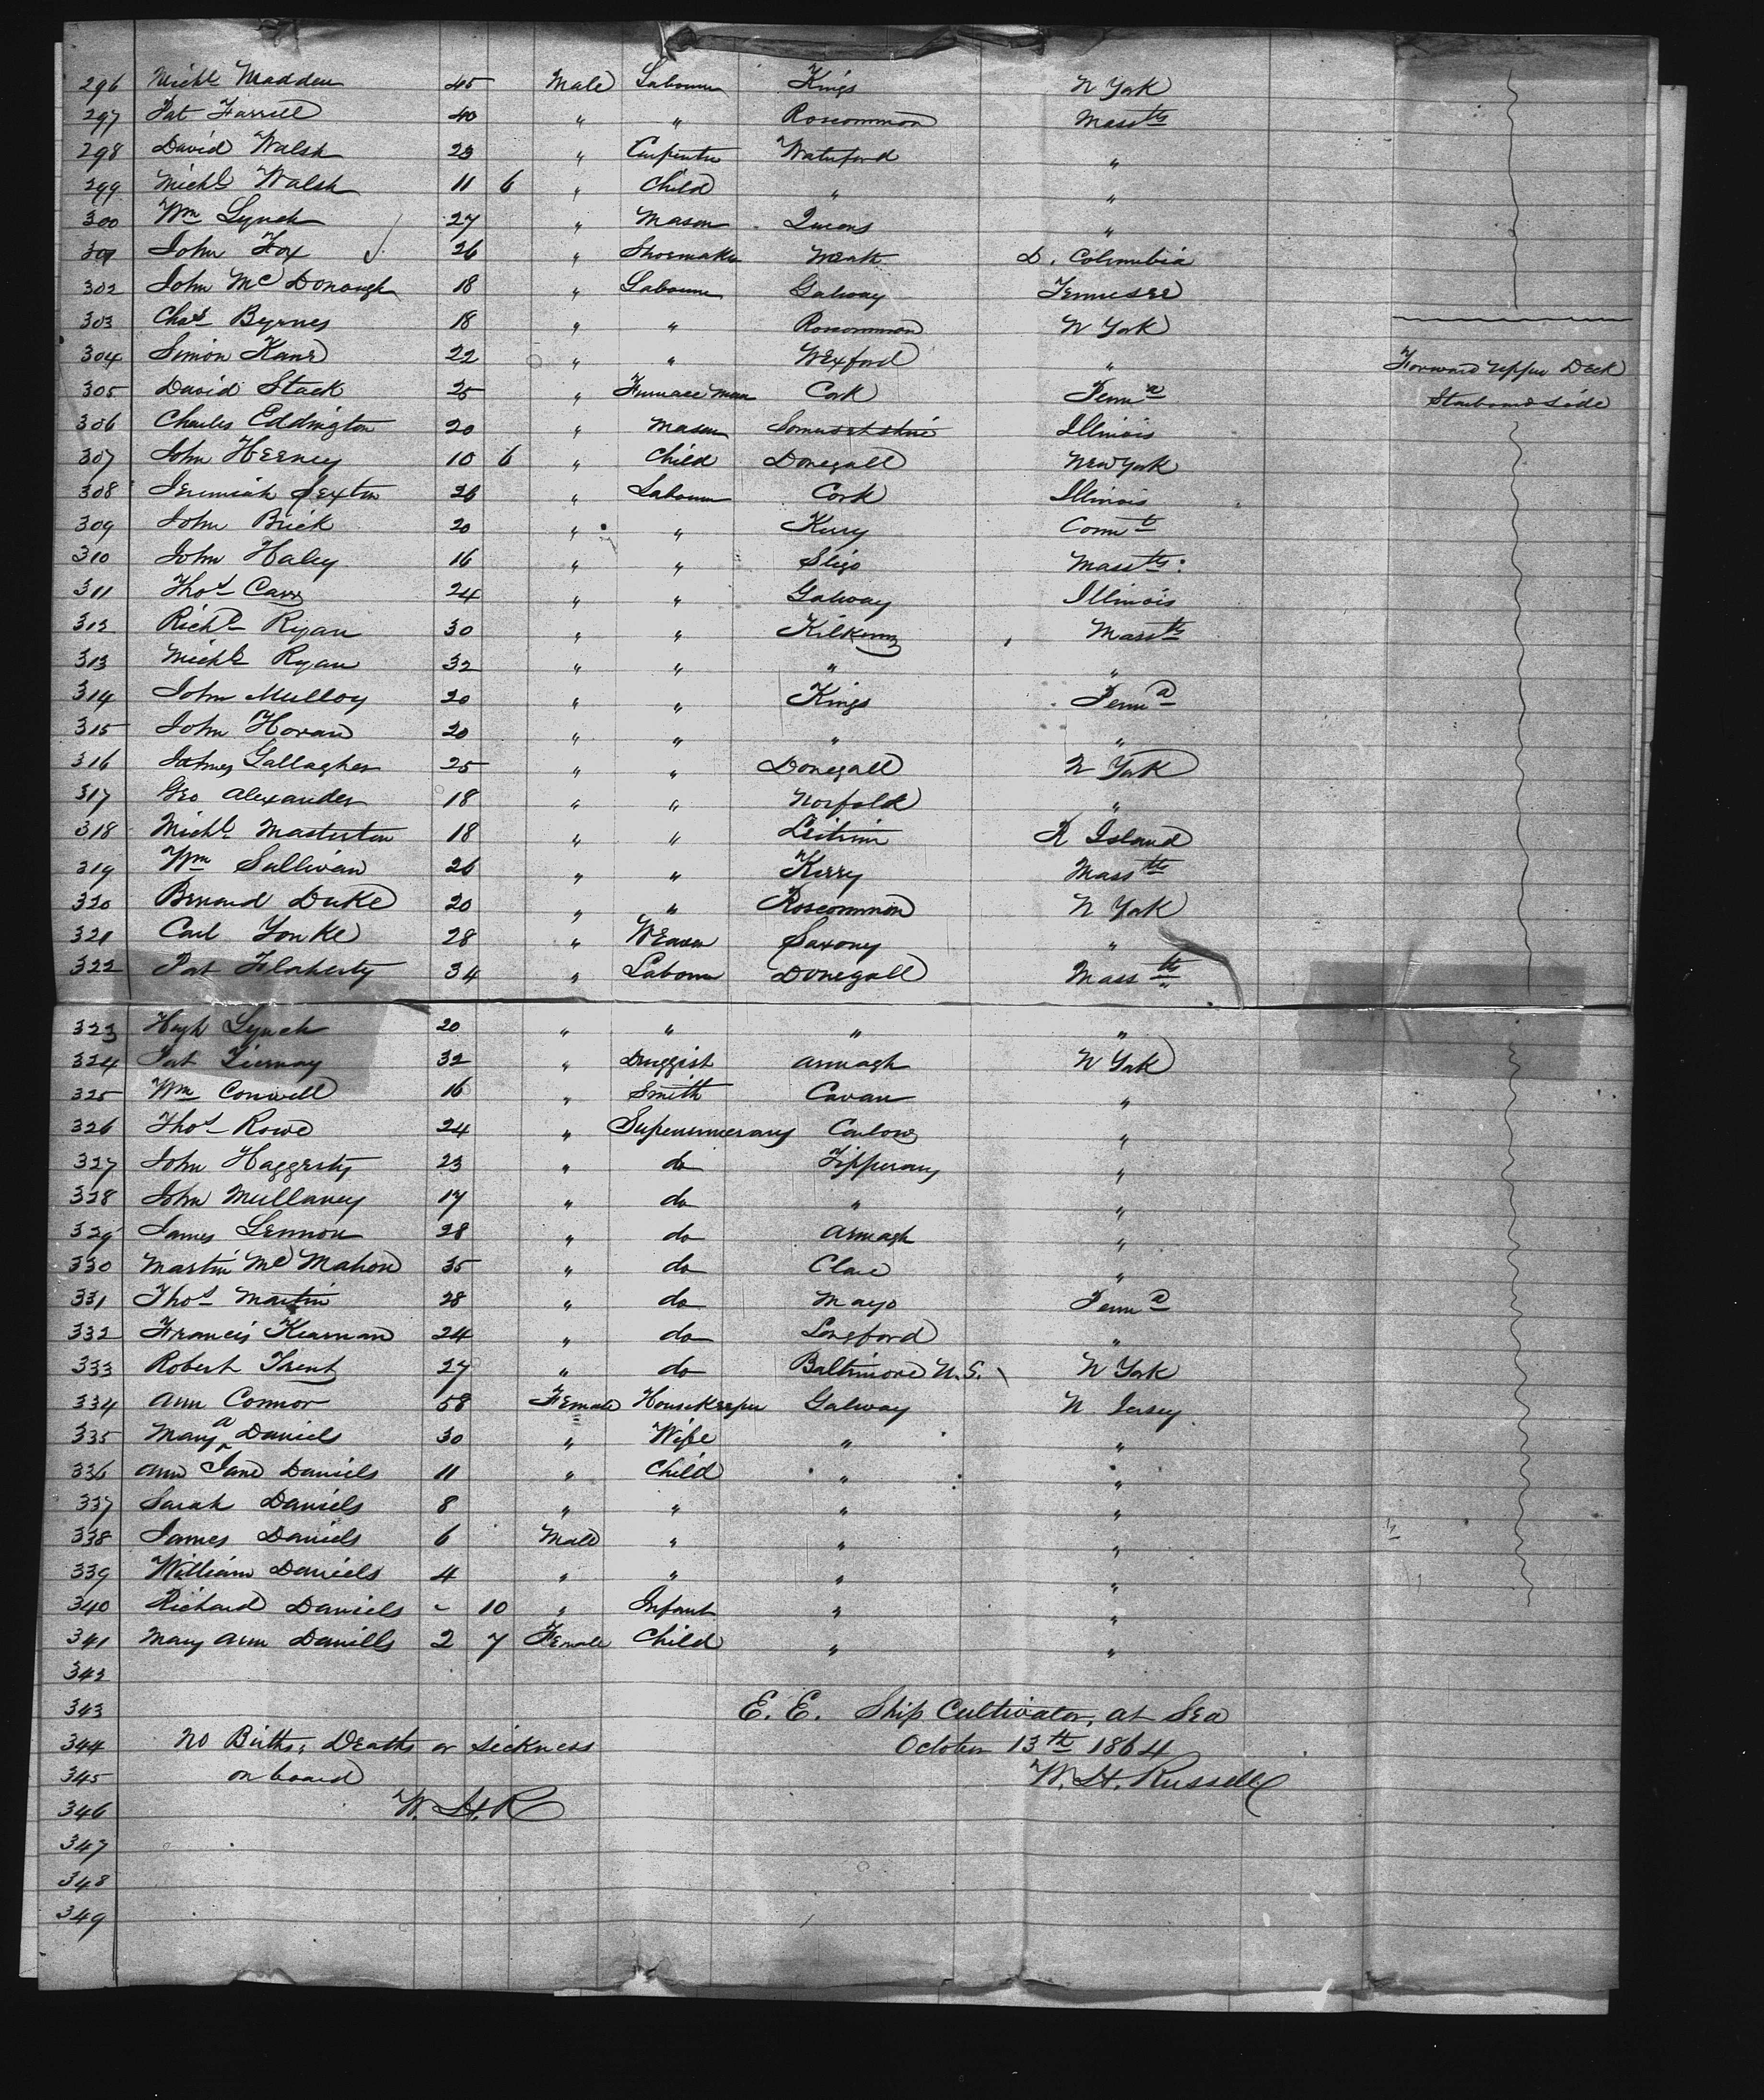 296 Michl Madden 45 Male Labourer Kings N York
297 Pat Farrell 40 " " Roscommon Massts
298 David Walsh 23 " Carpenter Waterford "
299 Michl Walsh 11 6 " Child " "
300 Wm Lynch 27 " Mason Queens "
301 John Fox 26 " Shoemaker Meath D. Columbia
302 John McDonough 18 " Labourer Galway Tennessee
303 Chas Byrnes 18 " " Roscommon N York
304 Simon Kane 22 " " Wexford " Forward Upper Deck
305 David Stack 25 " Furnace Man Cork Penna Starboard Side
306 Charles Eddington 20 " Mason Somersetshire Illinois
307 John Heeney 10 6 " Child Donegall New York
308 Jeremiah Sexton 26 " Labourer Cork Illinois
309 John Brick 20 " " Kerry Connt
310 John Haley 16 " " Sligo Massts
311 Thos Carr 24 " " Galway Illinois
312 Richd Ryan 30 " " Kilkenny Massts
313 Michl Ryan 32 " " " "
314 John Mulloy 20 " " Kings Penna
315 John Horan 20 " " " "
316 James Gallagher 25 " " Donegall N York
317 Geo Alexander 18 " " Norfold "
318 Michl Masterton 18 " " Leitrim R Island
319 Wm Sullivan 26 " " Kerry Massts
320 Bernard Duke 20 " " Roscommon N York
321 Carl Yonke 28 " Weaver Saxony "
322 Pat Flaherty 34 " Labourer Donegall Massts
323 Hugh Lynch 20 " " " "
324 Pat Tiernay 32 " Druggist Armagh N York
325 Wm Conwell 16 " Smith Cavan "
326 Thos Rowe 24 " Supenumerary Carlow "
327 John Haggerty 23 " do Tipperary "
328 John Mullaney 17 " do " "
329 James Lennon 28 " do Armagh "
330 Martin McMahon 35 " do Clare "
331 Thos Martin 28 " do Mayo Penna
332 Francis Kiernan 24 " do Longford "
333 Robert Trent 27 " do Baltimore U.S. N York
334 Ann Connor 58 Female Housekeeper Galway N Jersey
335 Mary A Daniels 30 " Wife " "
336 Ann Jane Daniels 11 " Child " "
337 Sarah Daniels 8 " " " "
338 James Daniels 6 Male " " "
339 William Daniels 4 " " " "
340 Richard Daniels - 10 " Infant " "
341 Mary Ann Daniells 2 7 Female Child " "
342
343 E. E. Ship Cultivator, at Sea
344 No Births, Deaths or Sickness October 13th 1864
345 on board W. H. Russell
346 W. H. R
347
348
349